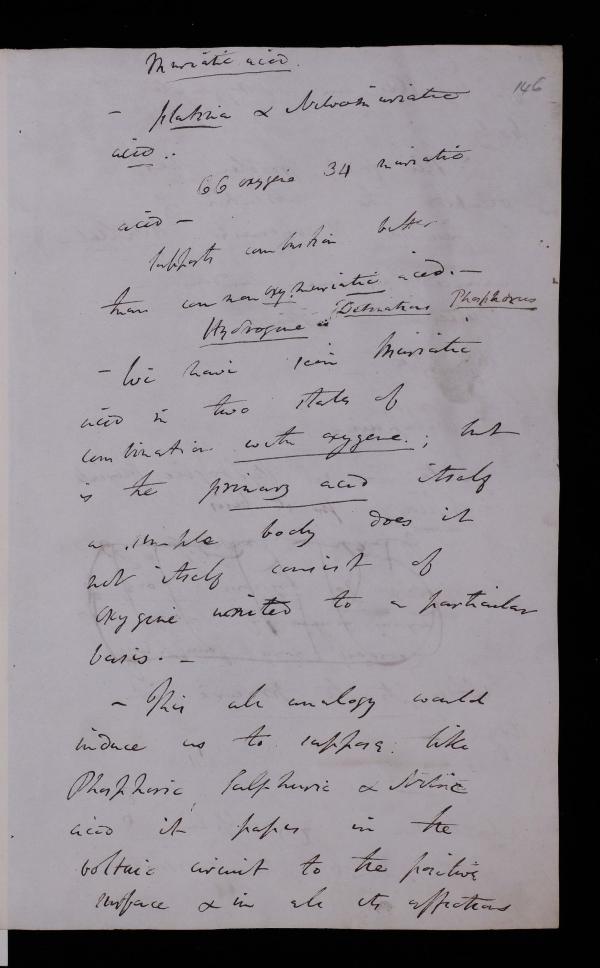 Muriatic acid.
146
- platina & Nitromuriatic
acid..
66 oxygene 34 muriatic
acid -
supports combustion better
than common oxymuriatic acid. -
Hydrogene - Detonations Phosphorus
- We have seen Muriatic
acid in two states of
combination with oxygene.; but
is the primary acid itself
a simple body does it
not itself consist of
oxygene united to a particular
basis. -
- This all analogy would
induce us to suppose: like
Phosphoric Sulphuric & Nitric
acid it passes in the
voltaic circuit to the positive
surface & in all its affections